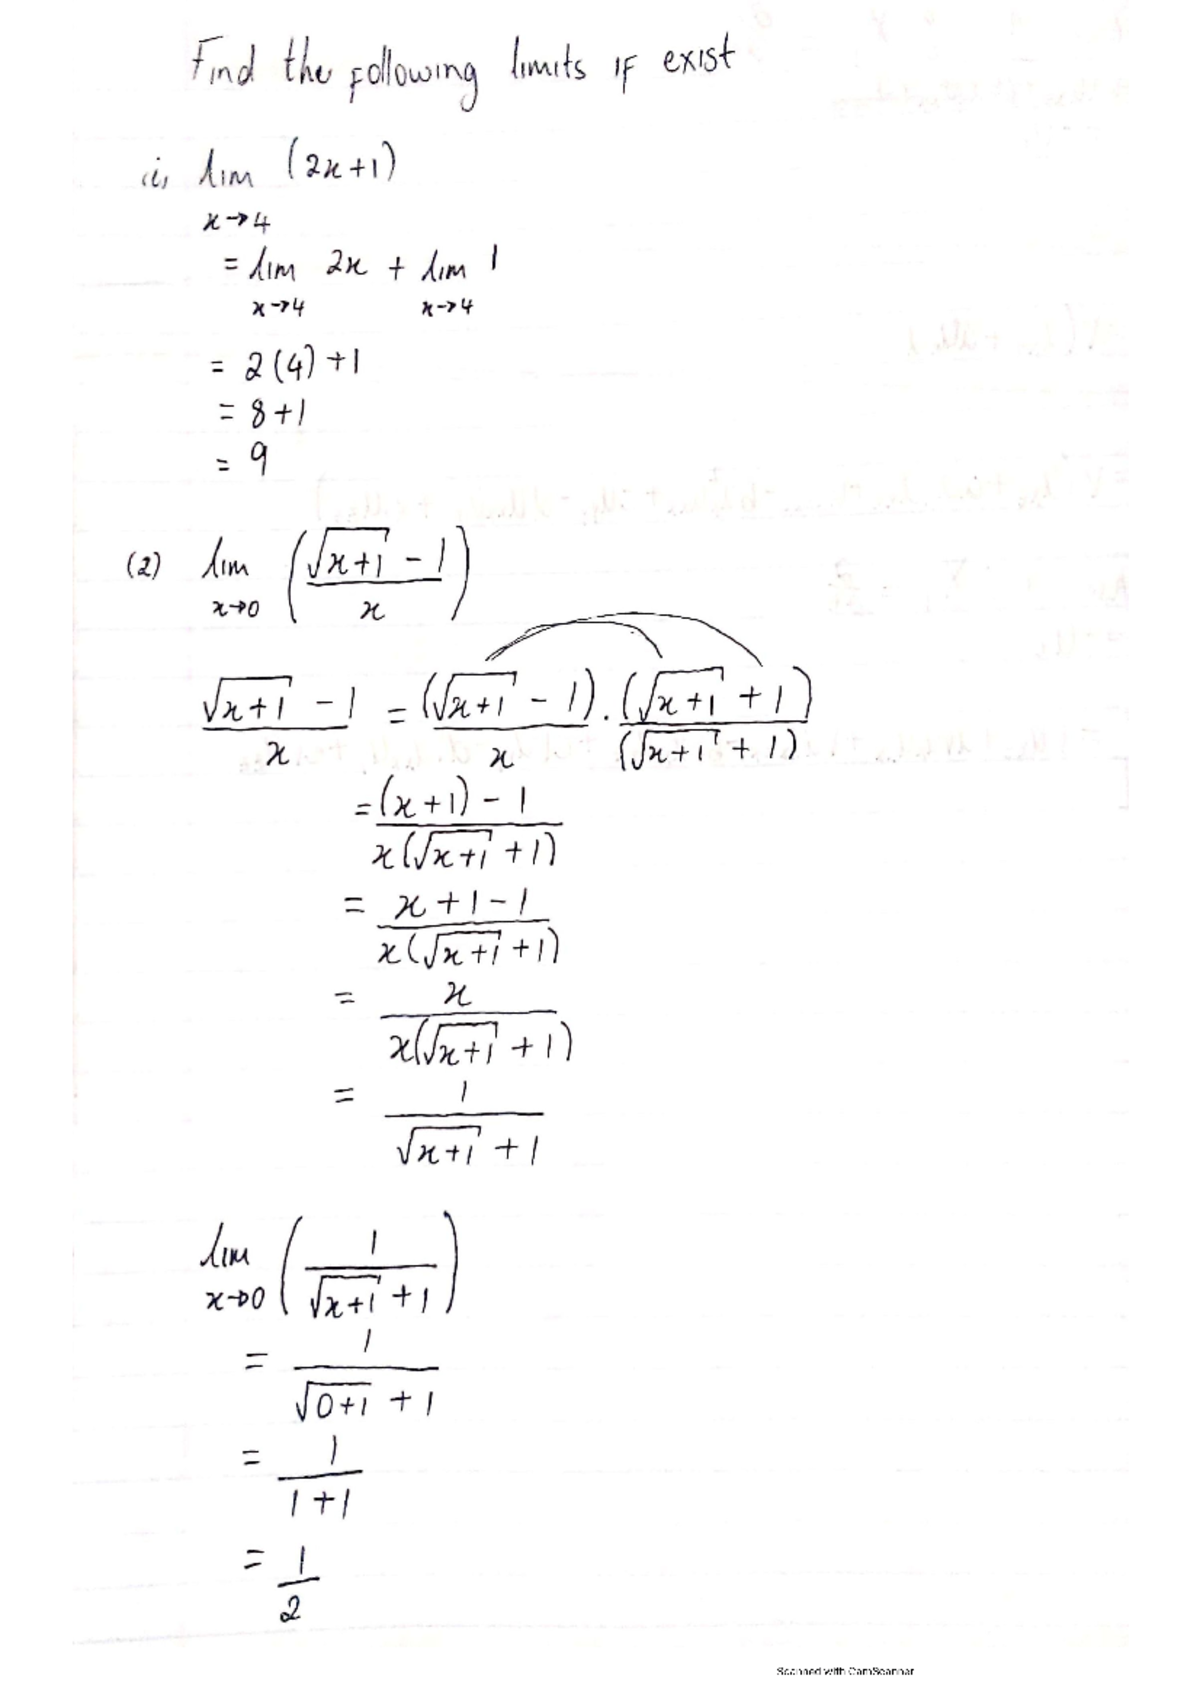 Find the following limits if exist
(i) lim (2x+1)
x→4
= lim 2x + lim 1
x→4 x→4
= 2(4)+1
= 8+1
= 9
(2) lim ( (√(x+1) - 1) / x )
x→0
(√(x+1) - 1) / x = (√(x+1) - 1) / x . (√(x+1) + 1) / (√(x+1) + 1)
= ((x+1) - 1) / (x(√(x+1) + 1))
= (x+1-1) / (x(√(x+1) + 1))
= x / (x(√(x+1) + 1))
= 1 / (√(x+1) + 1)
lim ( 1 / (√(x+1) + 1) )
x→0
= 1 / (√(0+1) + 1)
= 1 / (1+1)
= 1 / 2
Scanned with CamScanner